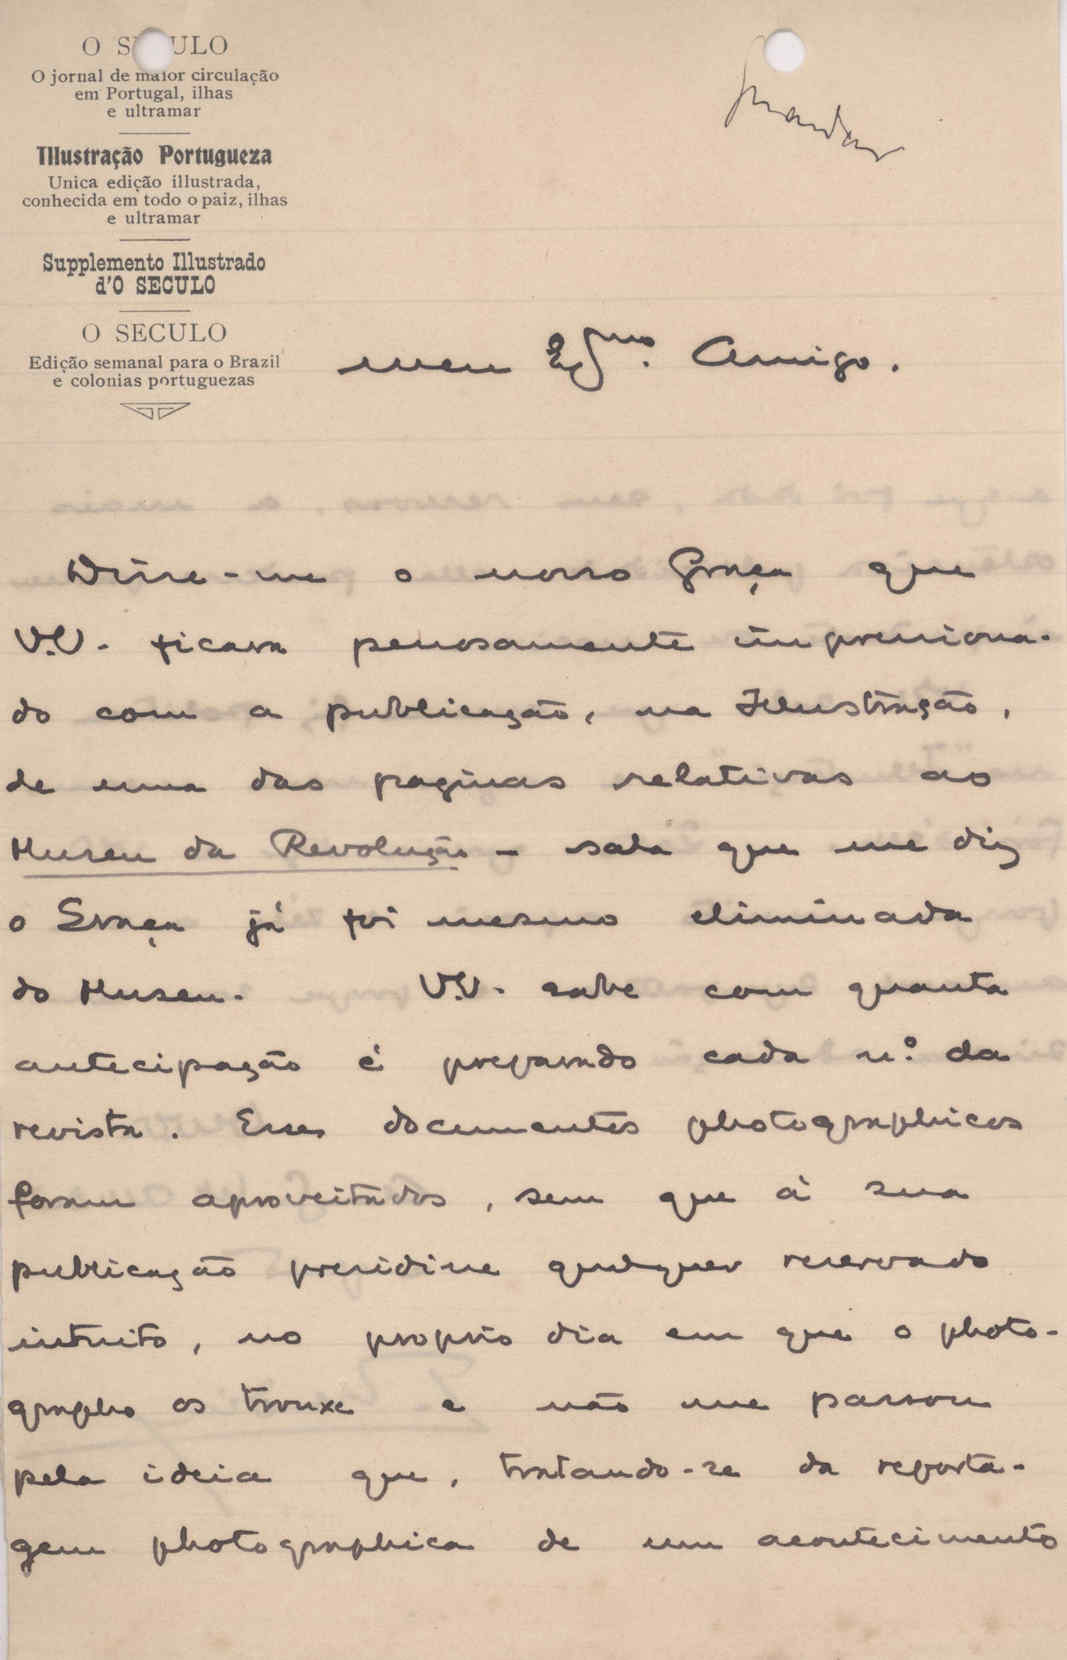 O SECULO
O jornal de maior circulação
em Portugal, ilhas
e ultramar
Illustração Portugueza
Unica edição illustrada,
conhecida em todo o paiz, ilhas
e ultramar
Supplemento Illustrado
d'O SECULO
O SECULO
Edição semanal para o Brazil
e colonias portuguezas
Guardar
Meu Exmo. Amigo.
Disse-me o nosso Graça que
V.V. ficara penosamente impressiona-
do com a publicação, na Illustração,
de uma das paginas relativas ao
Museu da Revolução - sala que me diz
o Graça já foi mesmo eliminada
do Museu. V.V. sabe com quanta
antecipação é preparado cada n.º da
revista. Esses documentos photographicos
foram aproveitados, sem que á sua
publicação presidisse qualquer reservado
intuito, no proprio dia em que o photo-
grapho os trouxe e não me passou
pela ideia que, tratando-se da reporta-
gem photographica de um acontecimento